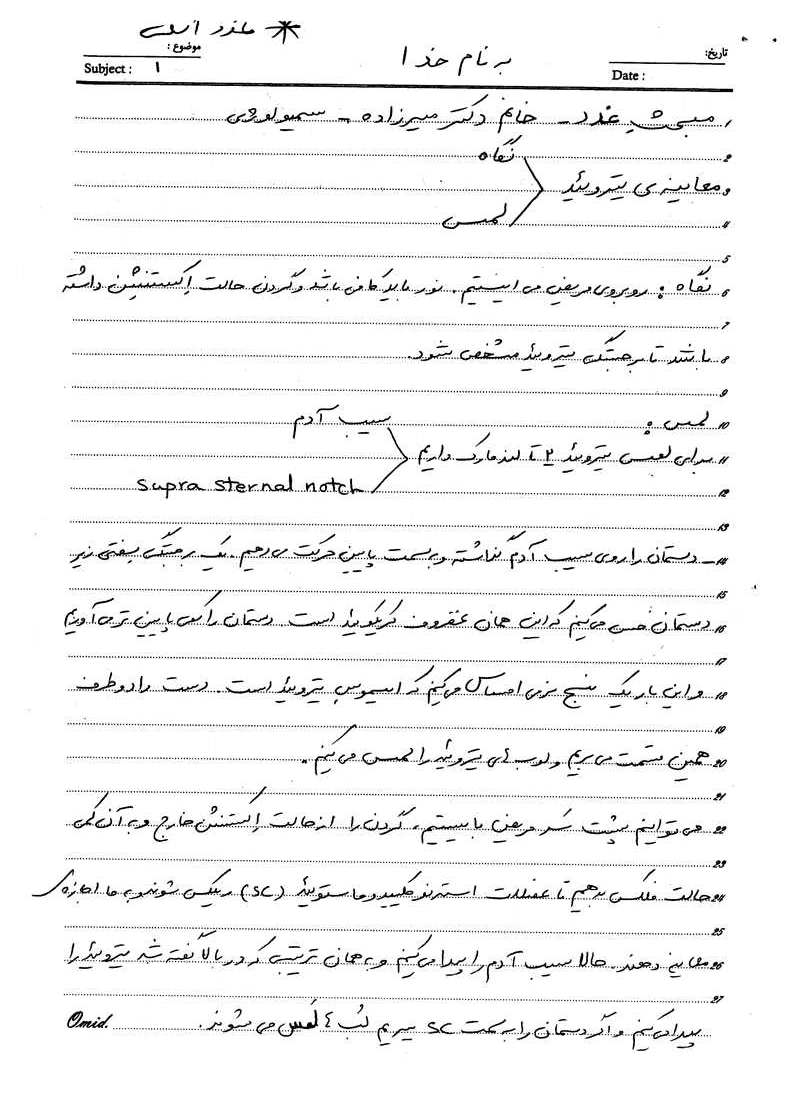 * غدد اصلی
موضوع:
Subject: ۱
به نام خدا
تاریخ:
Date:
1 مبحث غدد - خانم دکتر میرزاده - سمیولوژی
2 نگاه
3 معاینه ی تیروئید
4 لمس
5
6 نگاه: روبروی مریض می ایستیم. نور باید کافی باشد و گردن حالت اکستنشن داشته
7
8 باشد تا برجستگی تیروئید مشخص شود.
9
10 لمس: سیب آدم
11 برای لمس تیروئید ۲ تا لندمارک داریم
12 supra sternal notch
13
14 - دستمان را روی سیب آدم گذاشته و به سمت پایین حرکت می دهیم. یک برجستگی سفتی زیر
15
16 دستمان حس می کنیم که این همان غضروف کریکوئید است. دستمان را کمی پایین تر می آوریم
17
18 و این بار یک نسج نرمی احساس می کنیم که ایسموس تیروئید است. دست را دو طرف
19
20 همین قسمت می بریم و لوب های تیروئید را لمس می کنیم.
21
22 می توانیم پشت سر مریض بایستیم، گردن را از حالت اکستنشن خارج و به آن کمی
23
24 حالت فلکس بدهیم تا عضلات استرنوکلیدوماستوئید (SC) ریلکس شوند و به ما اجازه
25
26 معاینه دهند. حالا سیب آدم را پیدا می کنیم و به همان ترتیب که در بالا گفته شد تیروئید را
27
پیدا می کنیم و اگر دستمان را به سمت SC ببریم لُب ها لمس می شوند.
Omid.